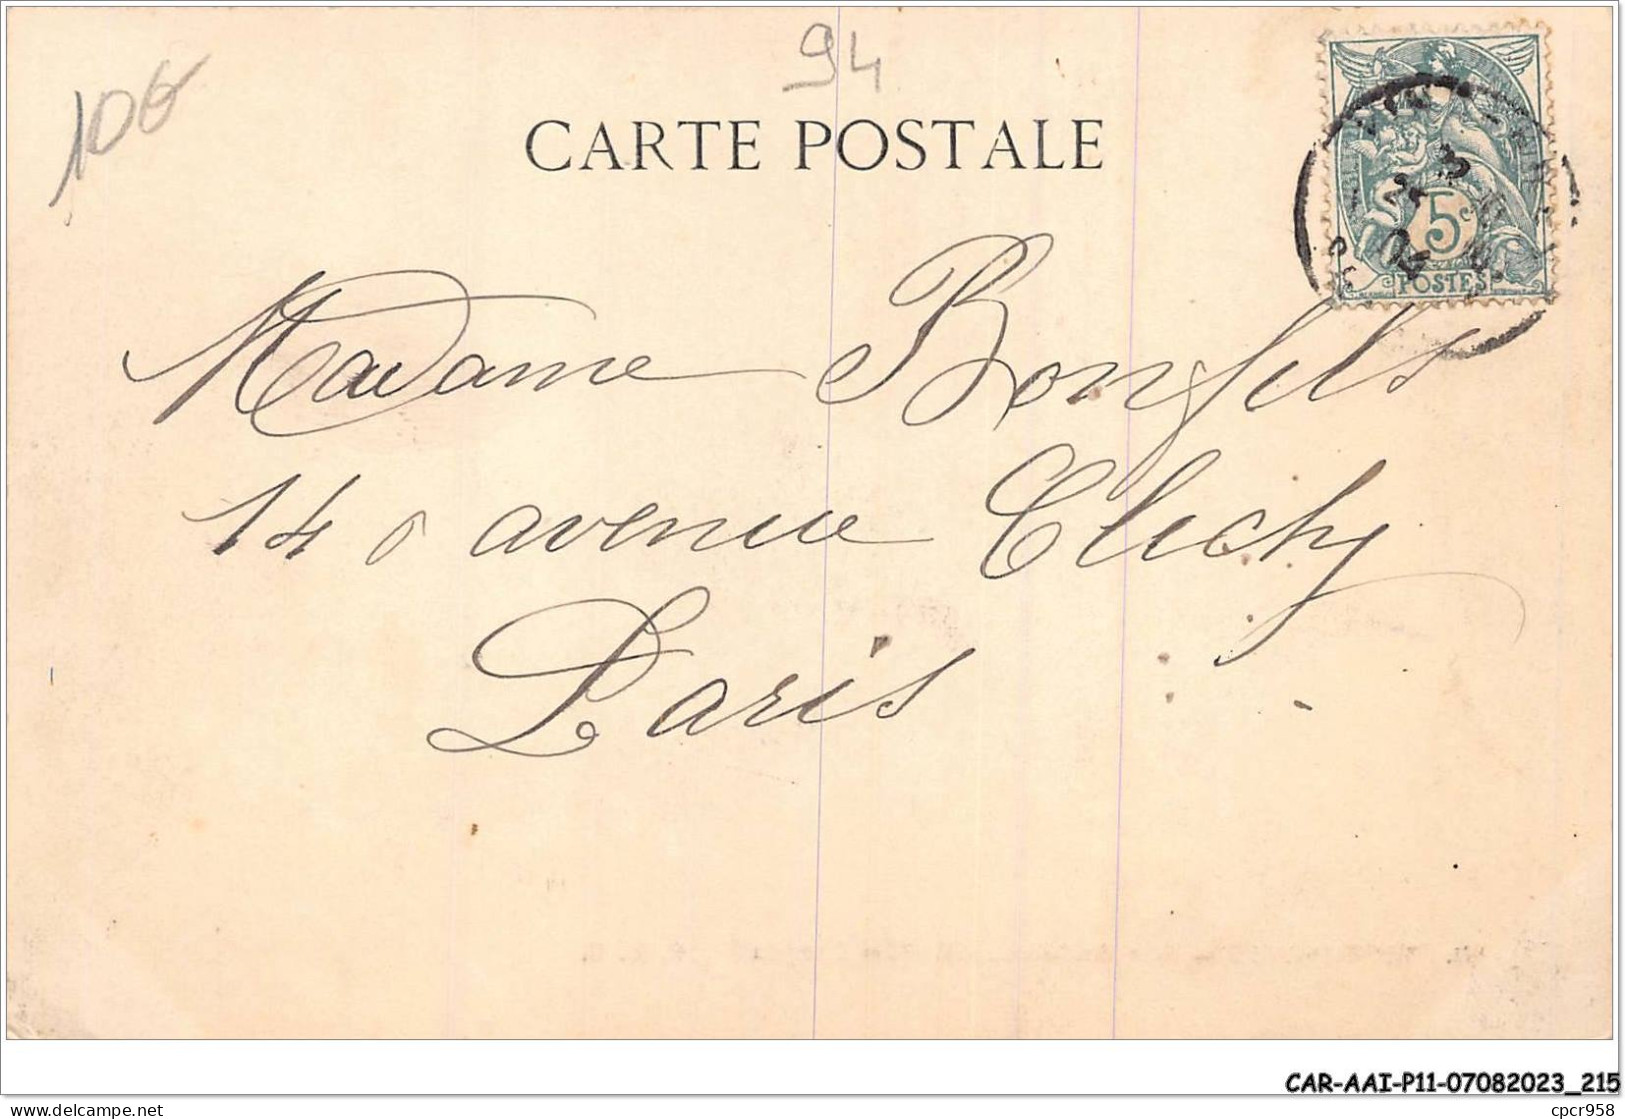 94
CARTE POSTALE
5c
POSTES
3
04
Madame Bonfils
140 avenue Clichy
Paris
CAR-AAI-P11-07082023_215
delcampe.net
cpcr958